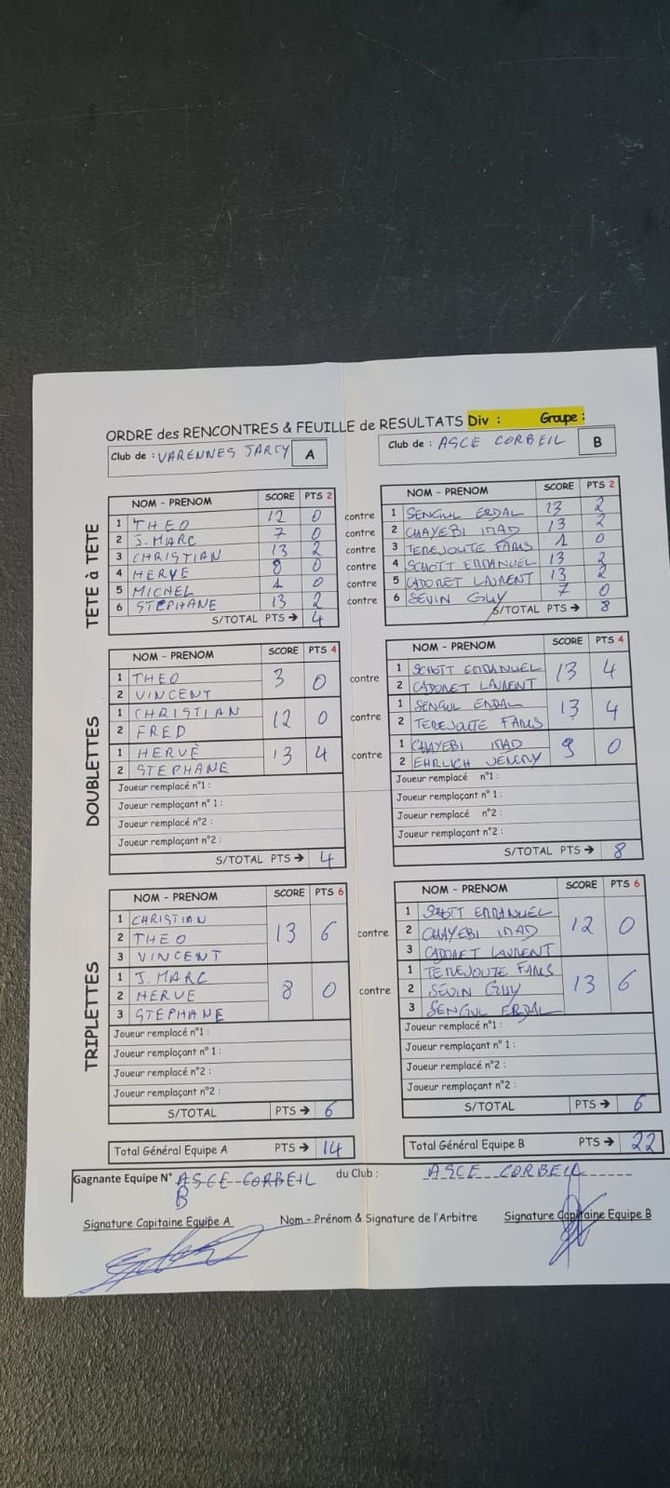 ORDRE des RENCONTRES & FEUILLE de RESULTATS Div : Groupe :
Club de : VARENNES JARCY A
Club de : ASCE CORBEIL B
TÊTE à TÊTE
NOM - PRENOM SCORE PTS 2
1 THEO 12 0 contre
2 J. MARC 7 0 contre
3 CHRISTIAN 13 2 contre
4 HERVE 8 0 contre
5 MICHEL 1 0 contre
6 STEPHANE 13 2 contre
S/TOTAL PTS → 4
NOM - PRENOM SCORE PTS 2
1 SENGUL ERDAL 13 2
2 CHAYEBI IMAD 13 2
3 TEREJOUTE FARIS 1 0
4 SCHOTT EMMANUEL 13 2
5 CADORET LAURENT 13 2
6 SEVIN GUY 7 0
S/TOTAL PTS → 8
DOUBLETTES
NOM - PRENOM SCORE PTS 4
1 THEO 3 0 contre
2 VINCENT
1 CHRISTIAN 12 0 contre
2 FRED
1 HERVÉ 13 4 contre
2 STEPHANE
Joueur remplacé n°1 :
Joueur remplaçant n° 1 :
Joueur remplacé n°2 :
Joueur remplaçant n°2 :
S/TOTAL PTS → 4
NOM - PRENOM SCORE PTS 4
1 SCHOTT EMMANUEL 13 4
2 CADORET LAURENT
1 SENGUL ERDAL 13 4
2 TEREJOUTE FARIS
1 CHAYEBI IMAD 9 0
2 EHRLICH JEREMY
Joueur remplacé n°1 :
Joueur remplaçant n° 1 :
Joueur remplacé n°2 :
Joueur remplaçant n°2 :
S/TOTAL PTS → 8
TRIPLETTES
NOM - PRENOM SCORE PTS 6
1 CHRISTIAN
2 THEO 13 6 contre
3 VINCENT
1 J. MARC
2 HERVE 8 0 contre
3 STEPHANE
Joueur remplacé n°1 :
Joueur remplaçant n° 1 :
Joueur remplacé n°2 :
Joueur remplaçant n°2 :
S/TOTAL PTS → 6
NOM - PRENOM SCORE PTS 6
1 SCHOTT EMMANUEL
2 CHAYEBI IMAD 12 0
3 CADORET LAURENT
1 TEREJOUTE FARIS
2 SEVIN GUY 13 6
3 SENGUL ERDAL
Joueur remplacé n°1 :
Joueur remplaçant n° 1 :
Joueur remplacé n°2 :
Joueur remplaçant n°2 :
S/TOTAL PTS → 6
Total Général Equipe A PTS → 14
Total Général Equipe B PTS → 22
Gagnante Equipe N° ASCE CORBEIL du Club : ASCE CORBEIL
B
Signature Capitaine Equipe A Nom - Prénom & Signature de l'Arbitre Signature Capitaine Equipe B